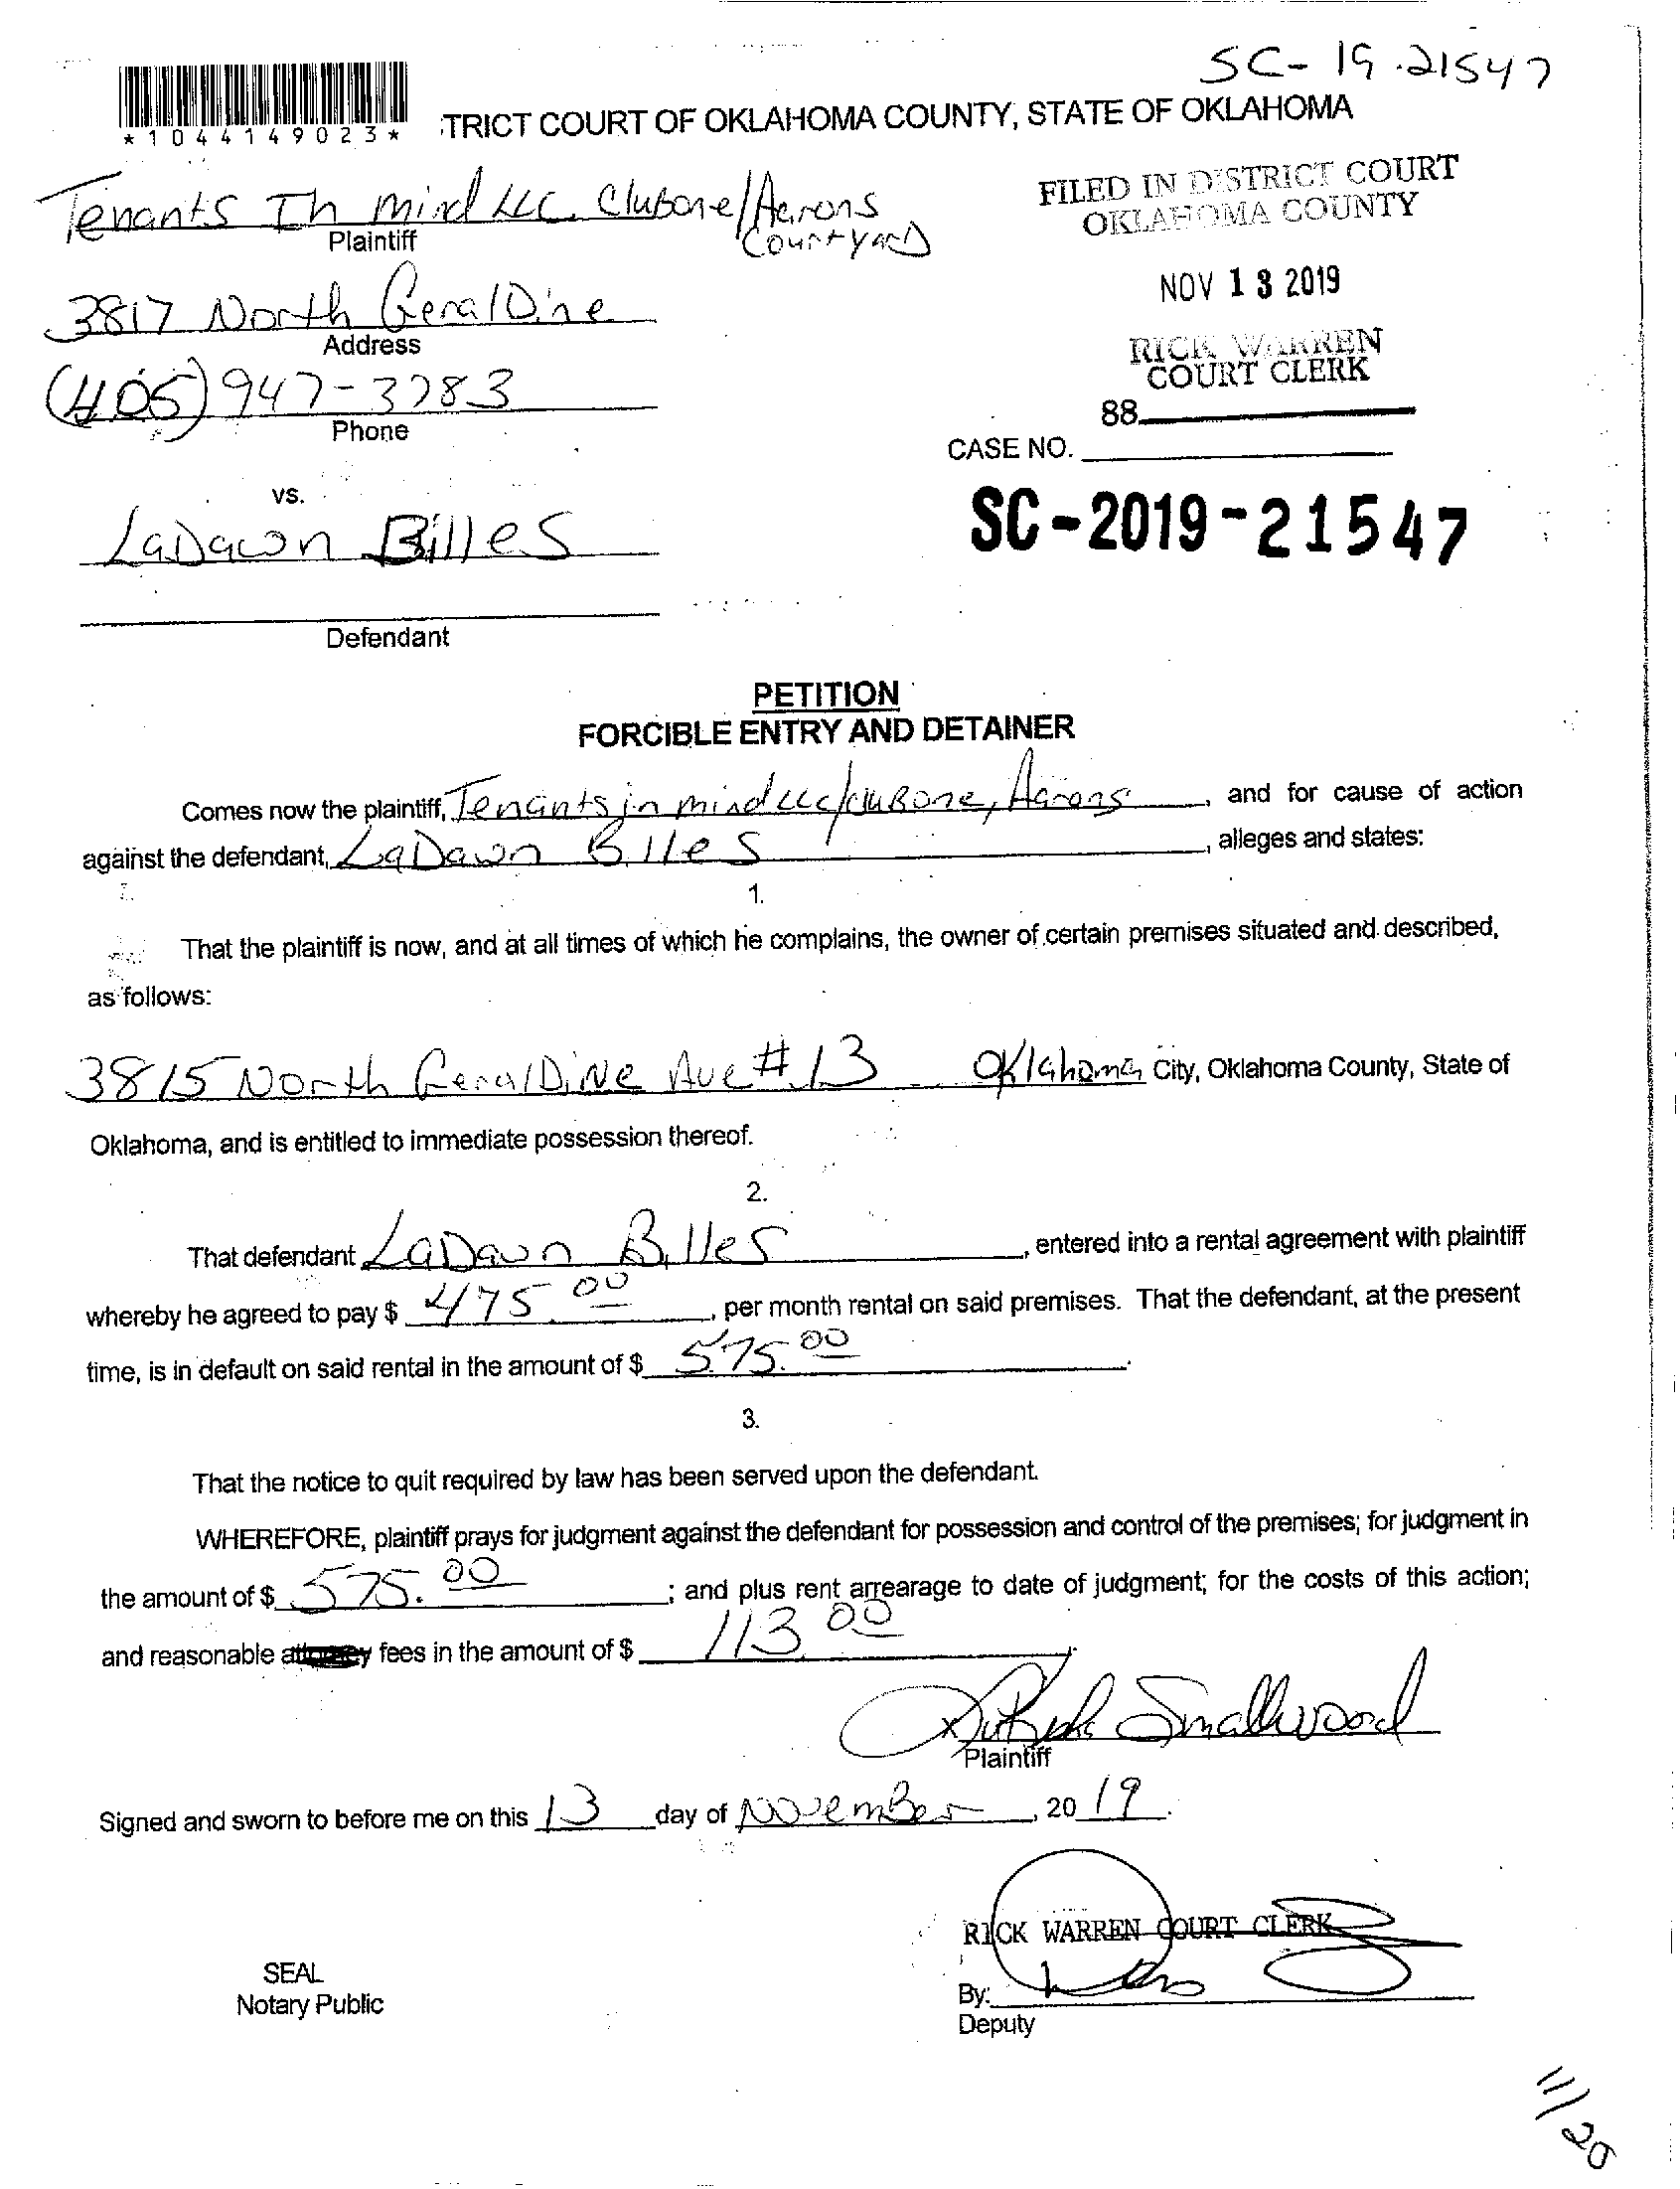 SC-19-21547
*1044149023*
TRICT COURT OF OKLAHOMA COUNTY, STATE OF OKLAHOMA
Tenants In mind LLC. Clubone/Aarons
Courtyard
Plaintiff
FILED IN DISTRICT COURT
OKLAHOMA COUNTY
3817 North GeralDine
Address
NOV 13 2019
(405) 947-3783
Phone
RICK WARREN
COURT CLERK
88
CASE NO.
vs.
LaDawn Billes
SC-2019-21547
Defendant
PETITION
FORCIBLE ENTRY AND DETAINER
Comes now the plaintiff, Tenants in mind LLC/cluBone, Aarons, and for cause of action
against the defendant, LaDawn Billes, alleges and states:
1.
That the plaintiff is now, and at all times of which he complains, the owner of certain premises situated and described,
as follows:
3815 North GeralDiNe Ave #13 Oklahoma City, Oklahoma County, State of
Oklahoma, and is entitled to immediate possession thereof.
2.
That defendant LaDawn Billes, entered into a rental agreement with plaintiff
whereby he agreed to pay $ 475.00, per month rental on said premises. That the defendant, at the present
time, is in default on said rental in the amount of $ 575.00.
3.
That the notice to quit required by law has been served upon the defendant.
WHEREFORE, plaintiff prays for judgment against the defendant for possession and control of the premises; for judgment in
the amount of $ 575.00; and plus rent arrearage to date of judgment; for the costs of this action;
and reasonable attorney fees in the amount of $ 113.00.
Smallwood
Plaintiff
Signed and sworn to before me on this 13 day of November, 2019.
RICK WARREN COURT CLERK
SEAL
Notary Public
By:
Deputy
11/20